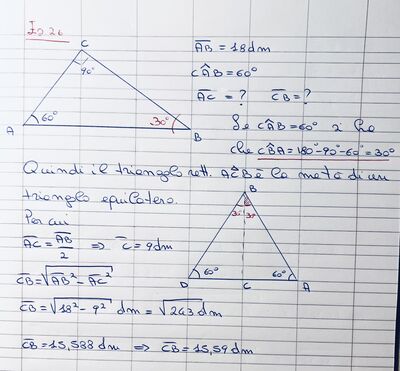 Es 26
C
90°
60°
A
30°
B
AB = 18 dm
CÂB = 60°
AC = ? CB = ?
Se CÂB = 60° si ha
che CB̂A = 180° - 90° - 60° = 30°
Quindi il triangolo rett. AĈB è la metà di un
triangolo equilatero.
Per cui
AC = AB/2 ⇒ C = 9 dm
CB = √AB² - AC²
CB = √18² - 9² dm = √243 dm
CB = 15,588 dm ⇒ CB = 15,59 dm
B
30° 30°
60° 60°
D C A